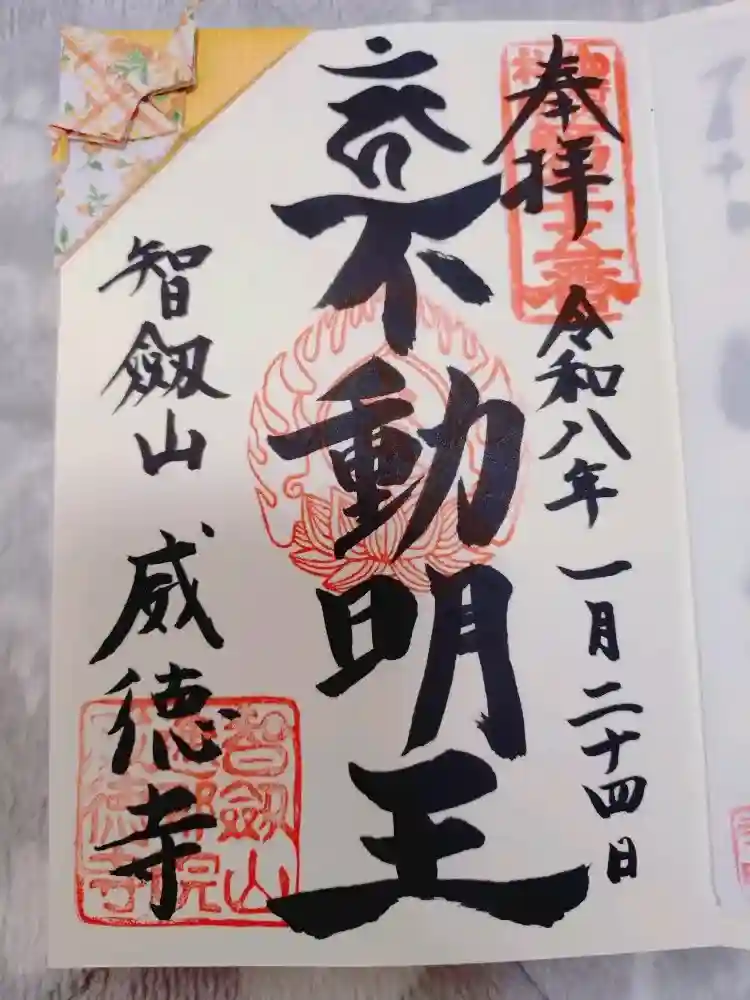 奉拝
令和八年一月二十四日
不動明王
智劔山 威徳寺
智劔山